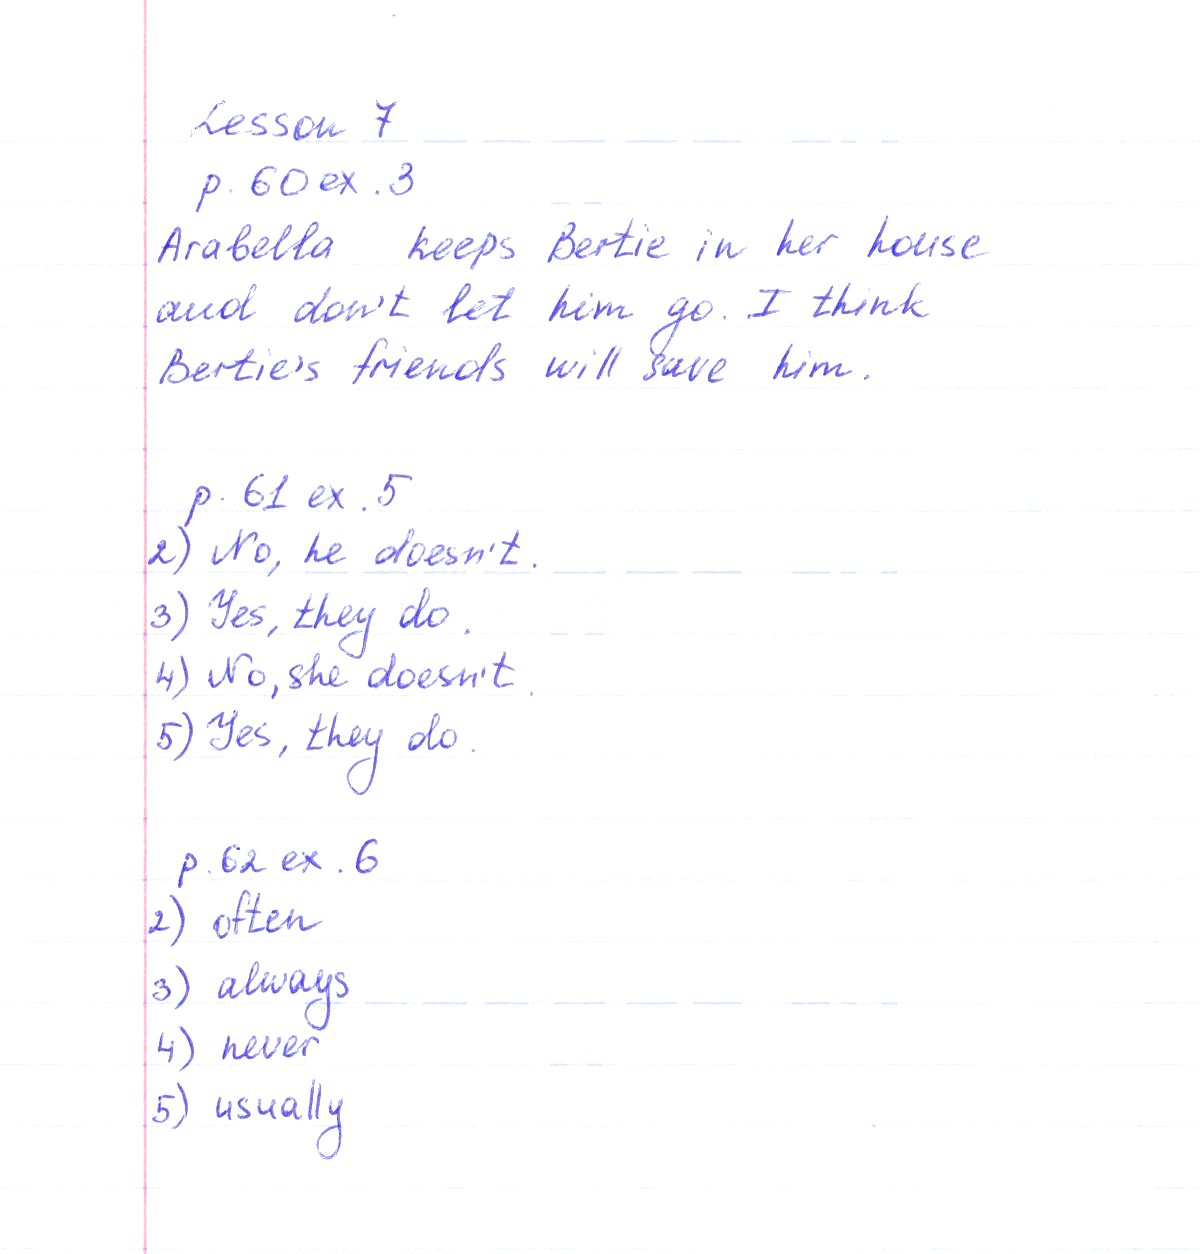 Lesson 7
p. 60 ex. 3
Arabella keeps Bertie in her house
and don't let him go. I think
Bertie's friends will save him.
p. 61 ex. 5
2) No, he doesn't.
3) Yes, they do.
4) No, she doesn't.
5) Yes, they do.
p. 62 ex. 6
2) often
3) always
4) never
5) usually